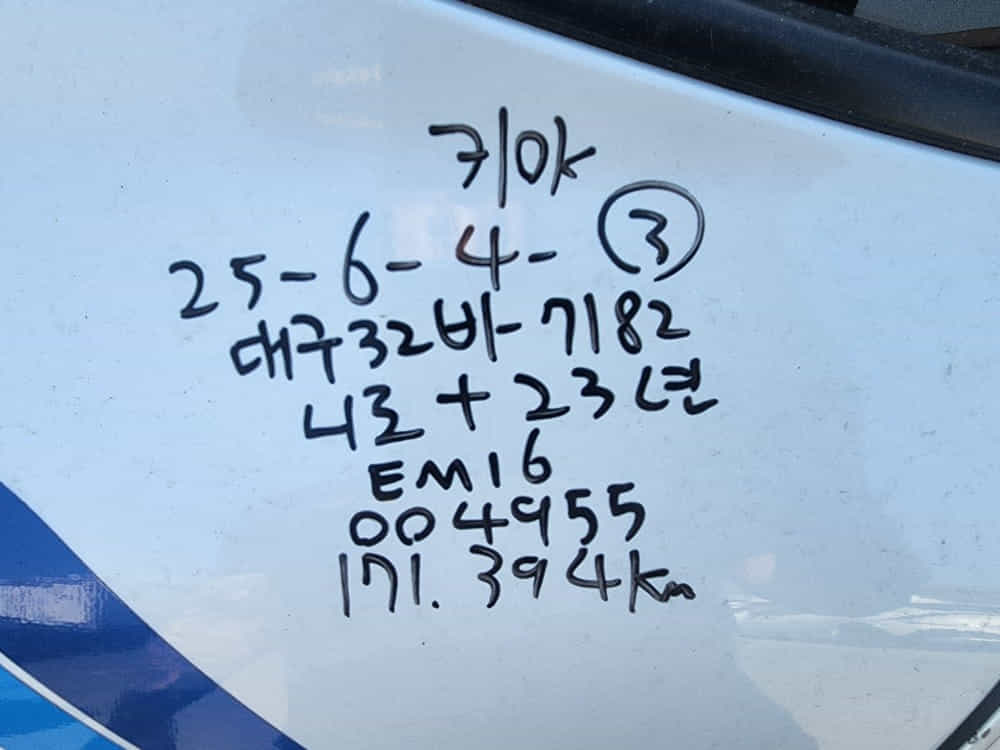 기아
25-6-4-③
대구32바-7182
니로+23년
EM16
004955
171.394km